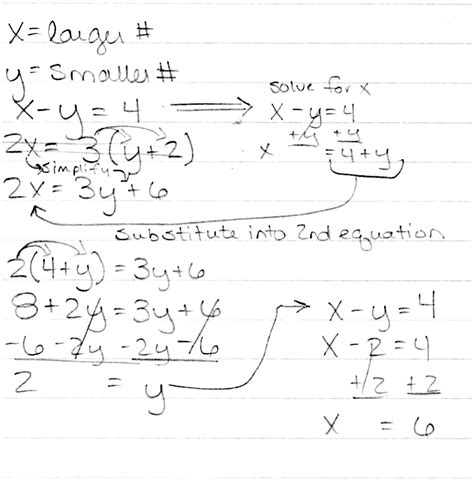 x = larger #
y = smaller #
x - y = 4
2x = 3(y+2)
simplify
2x = 3y + 6
solve for x
x - y = 4
+y +y
x = 4 + y
substitute into 2nd equation
2(4+y) = 3y+6
8 + 2y = 3y + 6
-6 -2y -2y -6
2 = y
x - y = 4
x - 2 = 4
+2 +2
x = 6